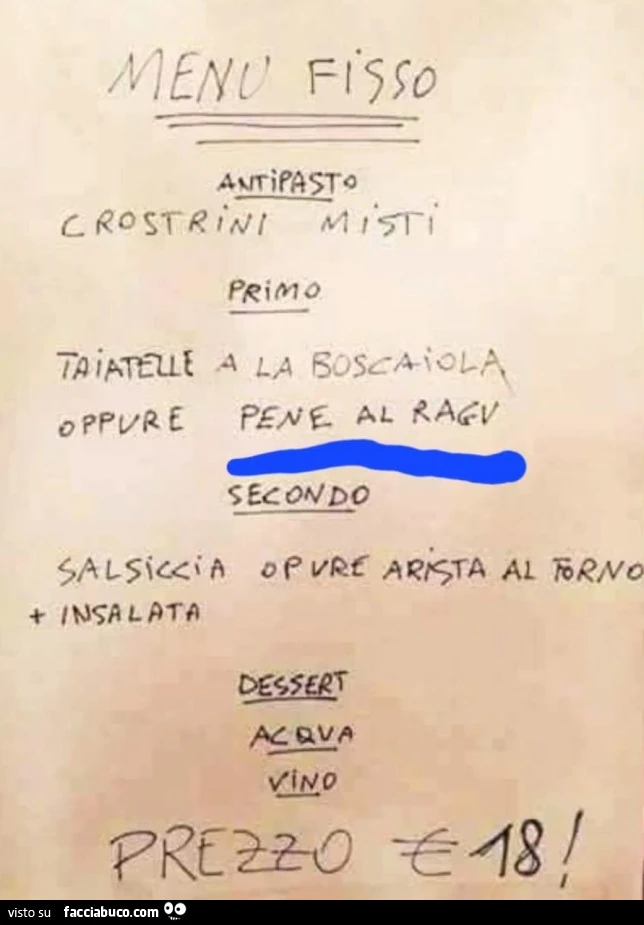 MENU FISSO
ANTIPASTO
CROSTRINI MISTI
PRIMO
TAIATELLE A LA BOSCAIOLA
OPPURE PENE AL RAGU
SECONDO
SALSICCIA OPURE ARISTA AL TORNO
+ INSALATA
DESSERT
ACQUA
VINO
PREZZO € 18!
visto su facciabuco.com